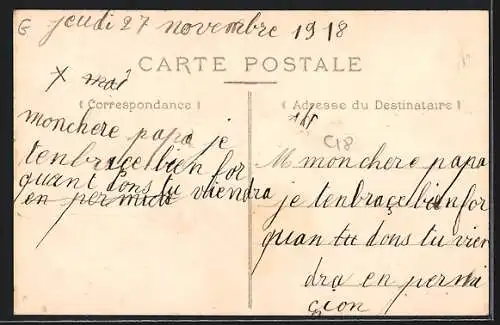 jeudi 27 novembre 1918
CARTE POSTALE
Correspondance
monchere papa je
tenbrace bien for
quant dons tu viendra
en permici
Adresse du Destinataire
C18
M monchere papa
je tenbraçe bien for
quan tu dons tu vien
dra en permi
çion